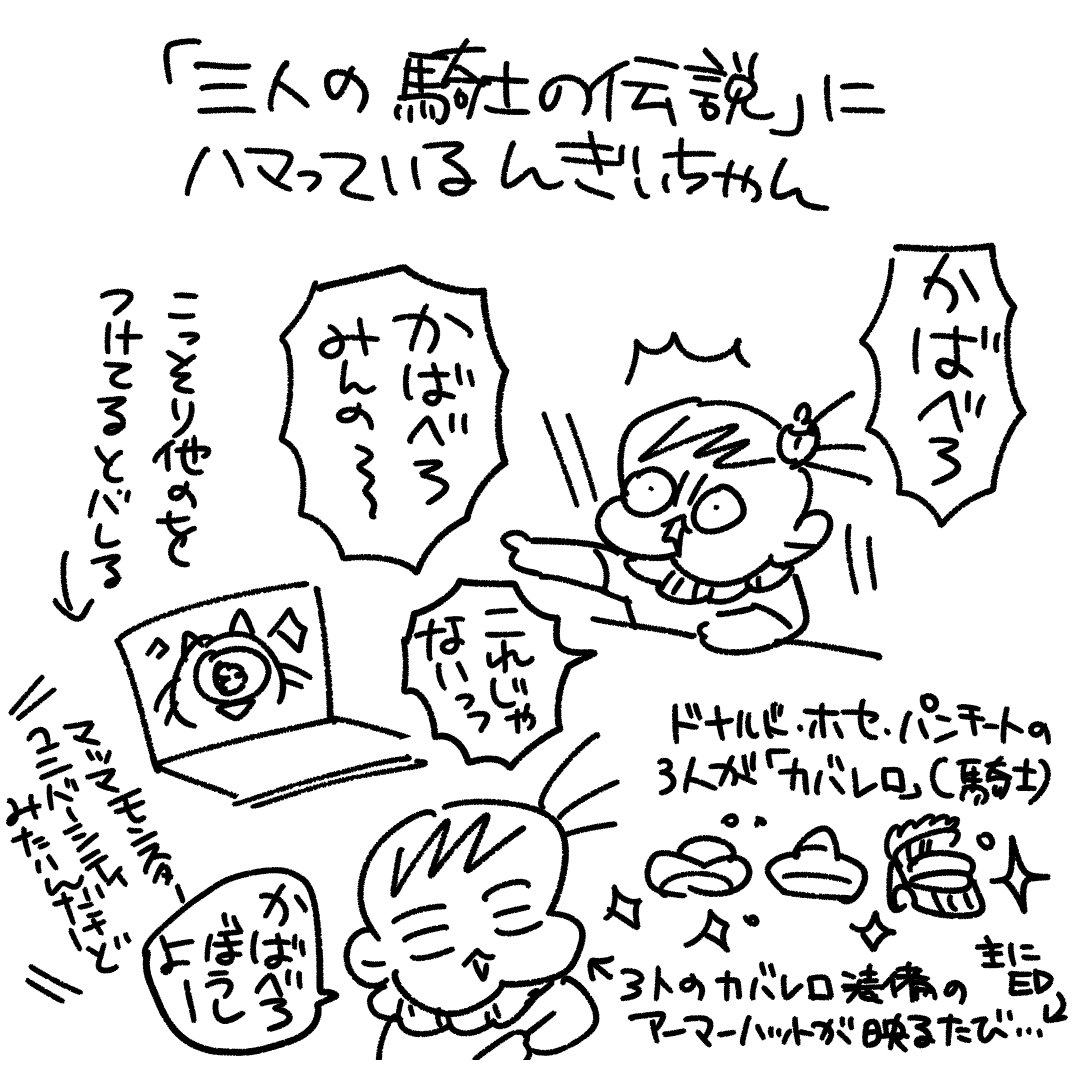 「三人の騎士の伝説」に
ハマっているんぎぃちゃん
かばべろ
かばべろ
みんの〜
こっそり他のを
つけてるとバレる
これじゃ
ないっっ
ママモンスター
ユニバーシティ
みたいんだけど
ドナルド・ホセ・パンチートの
3人が「カバレロ」(騎士)
かばべろ
ぼうし
よー
3人のカバレロ装備の
アーマーハットが映るたび…
主に
ED